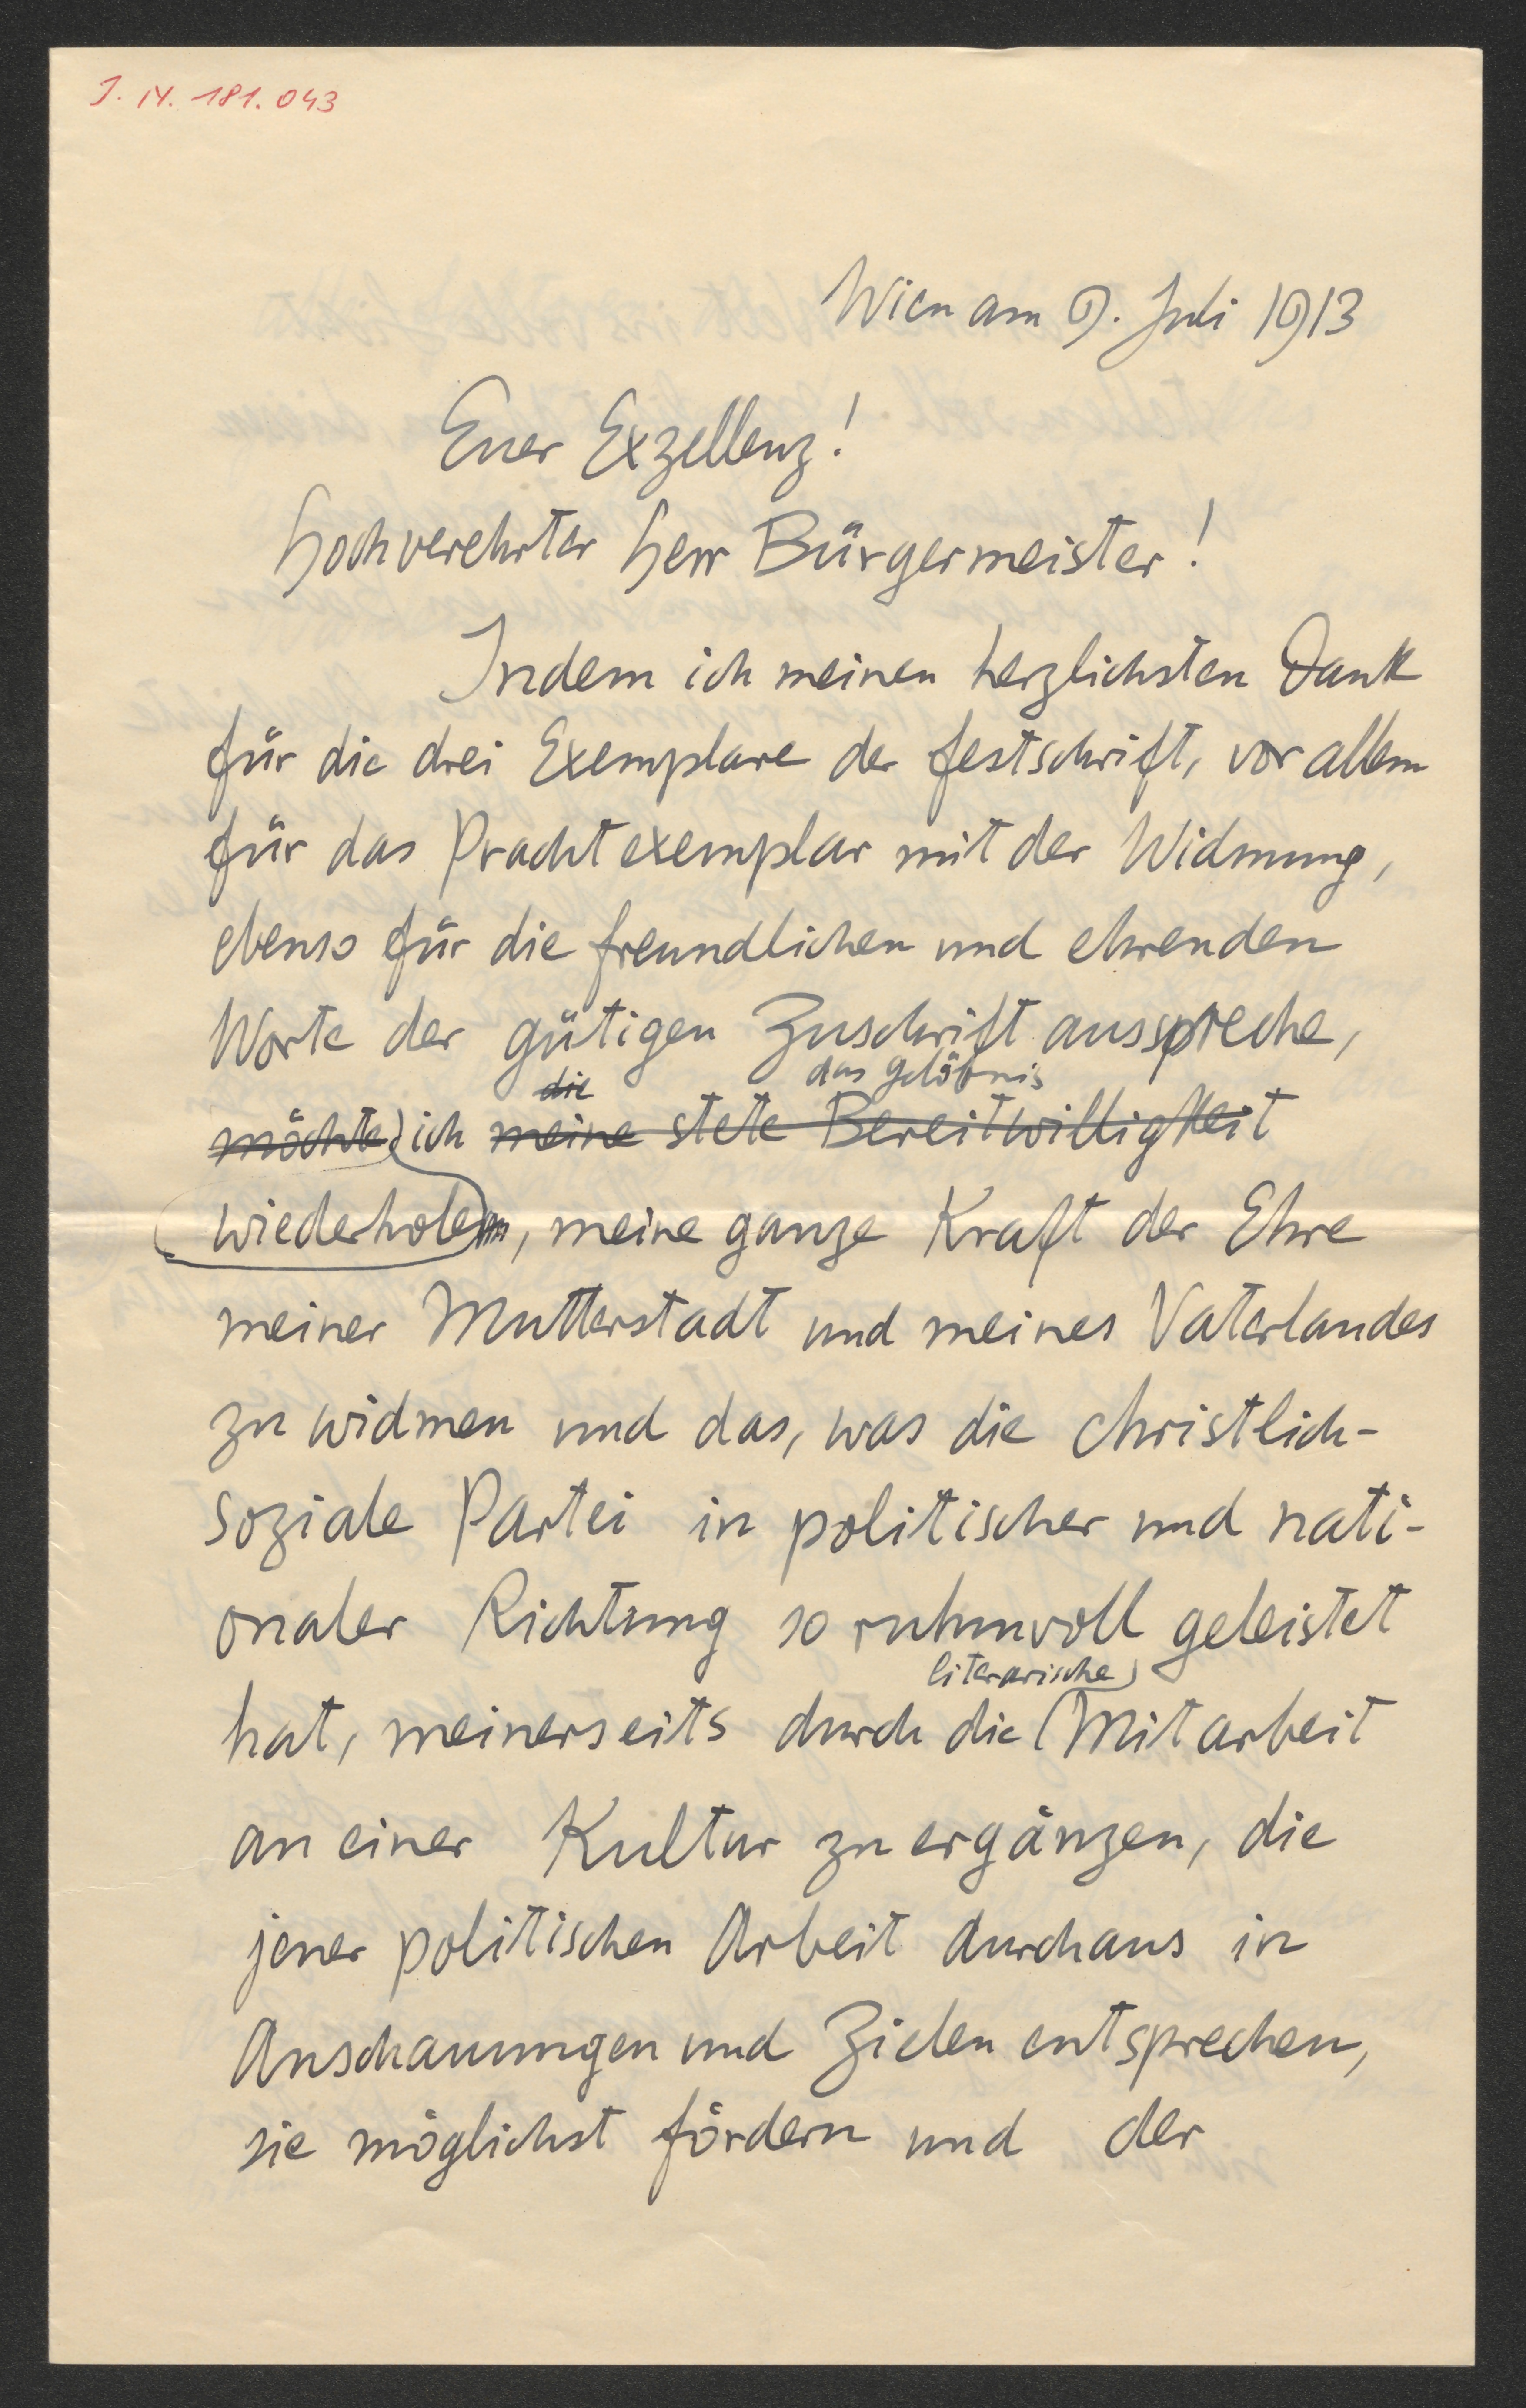 J. N. 181.043
Wien am 9. Juli 1913
Euer Exzellenz!
Hochverehrter Herr Bürgermeister!
Indem ich meinen herzlichsten Dank
für die drei Exemplare der Festschrift, vor allem
für das Prachtexemplar mit der Widmung,
ebenso für die freundlichen und ehrenden
Worte der gütigen Zuschrift ausspreche,
die das Gelöbnis
möchte ich meine stete Bereitwilligkeit
wiederholen, meine ganze Kraft der Ehre
meiner Mutterstadt und meines Vaterlandes
zu widmen und das, was die christlich-
soziale Partei in politischer und nati-
onaler Richtung so ruhmvoll geleistet
literarische
hat, meinerseits durch die Mitarbeit
an einer Kultur zu ergänzen, die
jener politischen Arbeit durchaus in
Anschauungen und Zielen entsprechen,
sie möglichst fördern und der